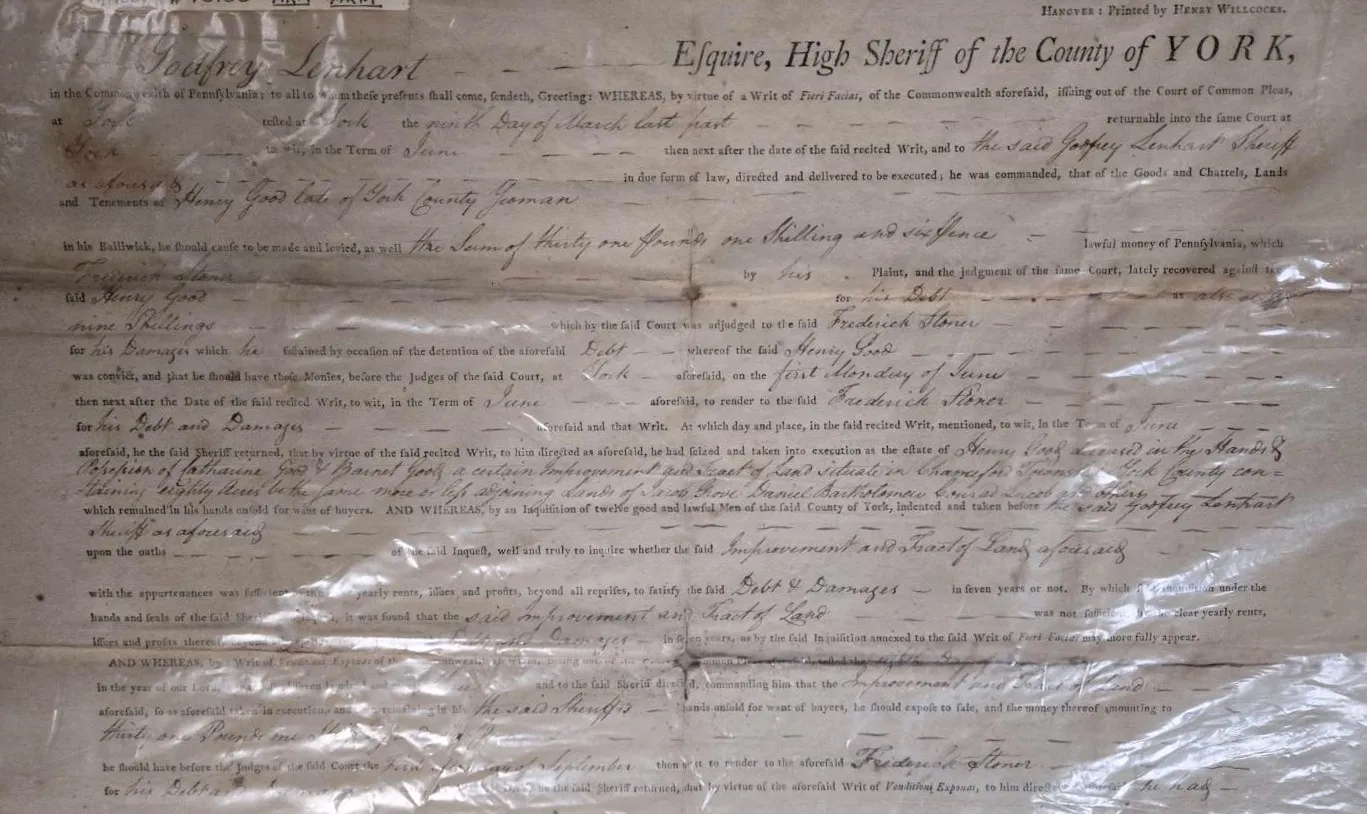 HANOVER: Printed by HENRY WILLCOCKS.
Godfrey Lenhart Eſquire, High Sheriff of the County of YORK,
in the Commonwealth of Pennſylvania: to all to whom theſe preſents ſhall come, ſendeth, Greeting: WHEREAS, by virtue of a Writ of Fieri Facias, of the Commonwealth aforeſaid, iſſuing out of the Court of Common Pleas,
at York teſted at York the ninth Day of March last past returnable into the ſame Court at
York to wit, in the Term of June then next after the date of the ſaid recited Writ, and to the said Godfrey Lenhart Sheriff
as aforesaid in due form of law, directed and delivered to be executed; he was commanded, that of the Goods and Chattels, Lands
and Tenements of Henry Good late of York County Yeoman
in his Bailiwick, he ſhould cauſe to be made and levied, as well the Sum of thirty one Pounds one Shilling and sixpence lawful money of Pennſylvania, which
Frederick Stoner by his Plaint, and the judgment of the ſame Court, lately recovered againſt the
ſaid Henry Good for his Debt as also
nine Shillings which by the ſaid Court was adjudged to the ſaid Frederick Stoner
for his Damages which he ſuſtained by occaſion of the detention of the aforeſaid Debt whereof the ſaid Henry Good
was convict, and that he ſhould have thoſe Monies, before the Judges of the ſaid Court, at York aforeſaid, on the first Monday of June
then next after the Date of the ſaid recited Writ, to wit, in the Term of June aforeſaid, to render to the ſaid Frederick Stoner
for his Debt and Damages aforeſaid and that Writ. At which day and place, in the ſaid recited Writ, mentioned, to wit, in the Term of June
aforeſaid, he the ſaid Sheriff returned, that by virtue of the ſaid recited Writ, to him directed as aforeſaid, he had ſeized and taken into execution as the eſtate of Henry Good deceased in the Hands &
Possession of Catharine Good & Barnet Good, a certain Improvement and Tract of Land situate in Chanceford Township York County con-
-taining eighty Acres be the same more or less adjoining Lands of Jacob Grove Daniel Bartholomew Conrad and others
which remained in his hands unſold for want of buyers. AND WHEREAS, by an Inquiſition of twelve good and lawful Men of the ſaid County of York, indented and taken before the said Godfrey Lenhart
Sheriff as aforesaid
upon the oaths of the ſaid Inqueſt, well and truly to inquire whether the ſaid Improvement and Tract of Land aforesaid
with the appurtenances was ſufficient yearly rents, iſſues, and profits, beyond all repriſes, to ſatisfy the ſaid Debt & Damages in ſeven years or not. By which under the
hands and ſeals of the ſaid Sheriff it was found that the said Improvement and Tract of Land was not ſufficient clear yearly rents,
iſſues and profits thereof, Damages in ſeven years, as by the ſaid Inquiſition annexed to the ſaid Writ of Fieri Facias may more fully appear.
AND WHEREAS, by Writ of Venditioni Exponas of the
In the year of our Lord, and to the ſaid Sheriff directed, commanding him that the Improvement and Tract of Land
aforeſaid, ſo as aforeſaid taken in execution, and remaining in his the said Sheriffs hands unſold for want of buyers, he ſhould expoſe to ſale, and the money thereof amounting to
thirty one Pounds one
he ſhould have before the Judges of the ſaid Court the of September then next to render to the aforeſaid Frederick Stoner
for his Debt he the ſaid Sheriff returned, that by virtue of the aforeſaid Writ of Venditioni Exponas, to him directed he had